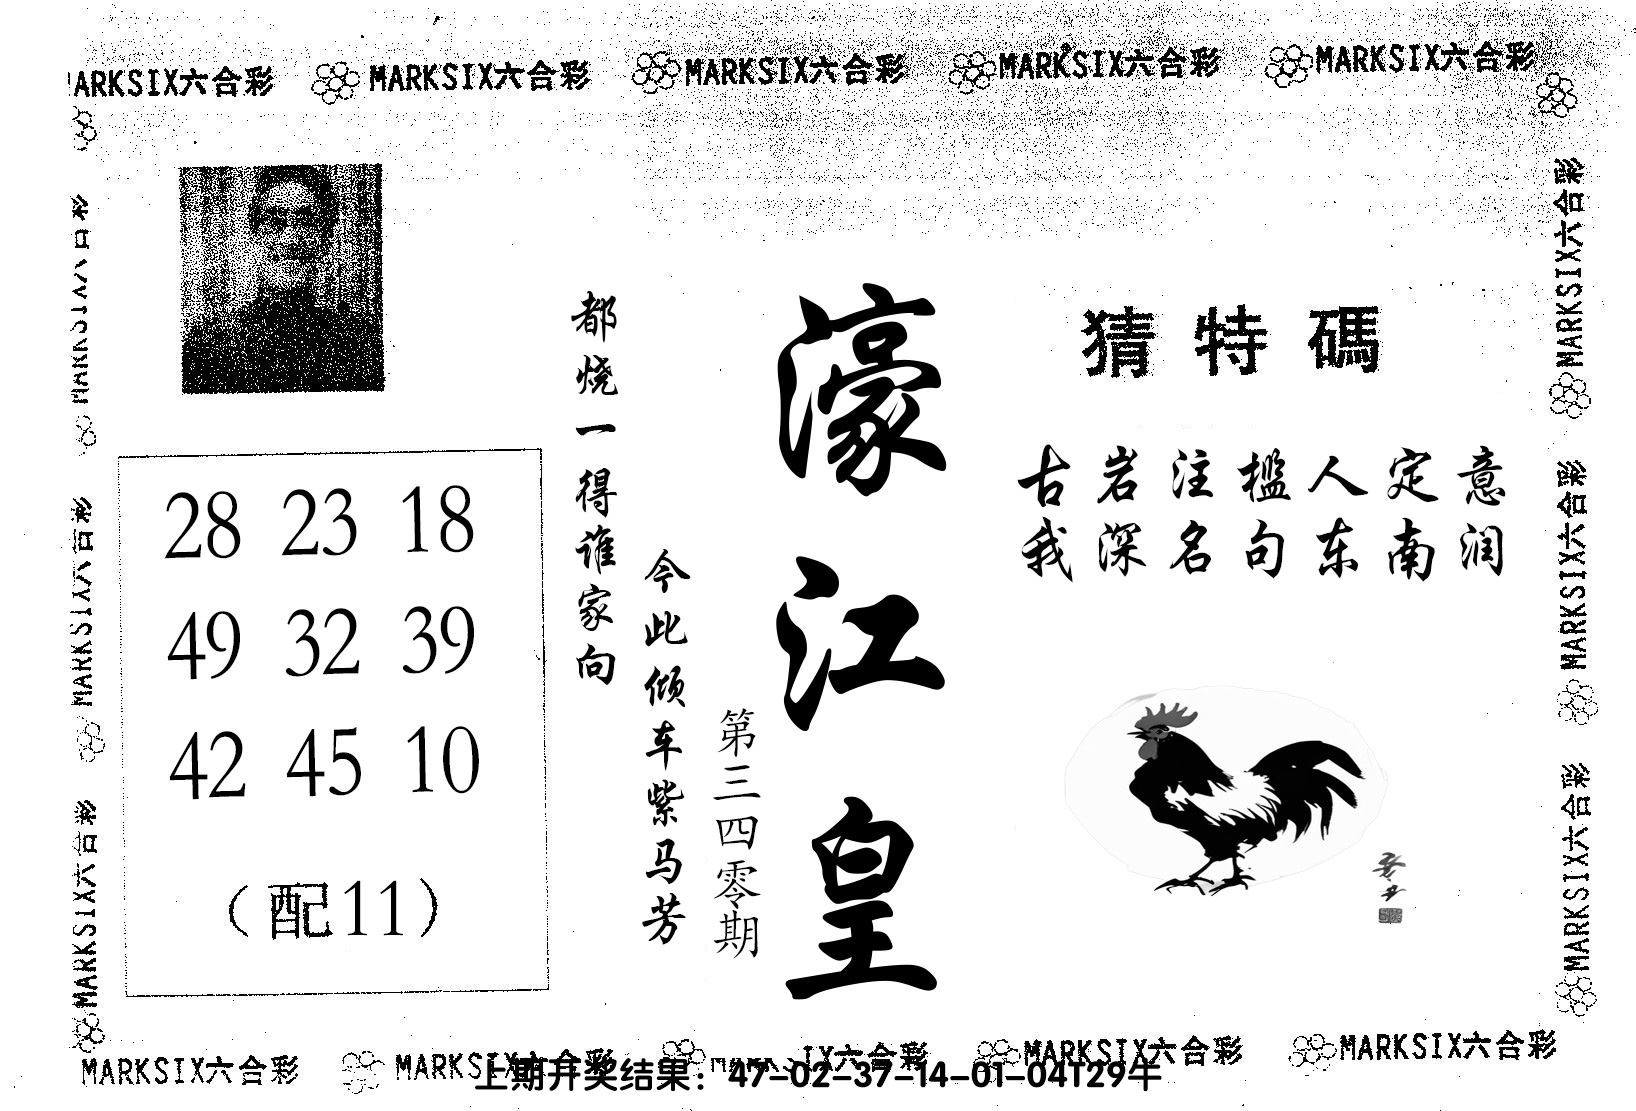 MARKSIX六合彩 MARKSIX六合彩 MARKSIX六合彩 MARKSIX六合彩
ARKSIX六合彩
猜特碼
古岩注槛人定意
我深名句东南润
濠江皇
第三四零期
今此倾车紫马芳
都烧一得谁家向
28 23 18
49 32 39
42 45 10
（配11）
MARKSIX六合彩
MARKSIX六合彩
MARKSIX六合彩
MARKSIX六合彩
MARKSIX六合彩
MARKSIX六合彩
MARKSIX六合彩 MARKSIX六合彩 IX六合彩 MARKSIX六合彩 MARKSIX六合彩
上期开奖结果：47-02-37-14-01-04T29牛